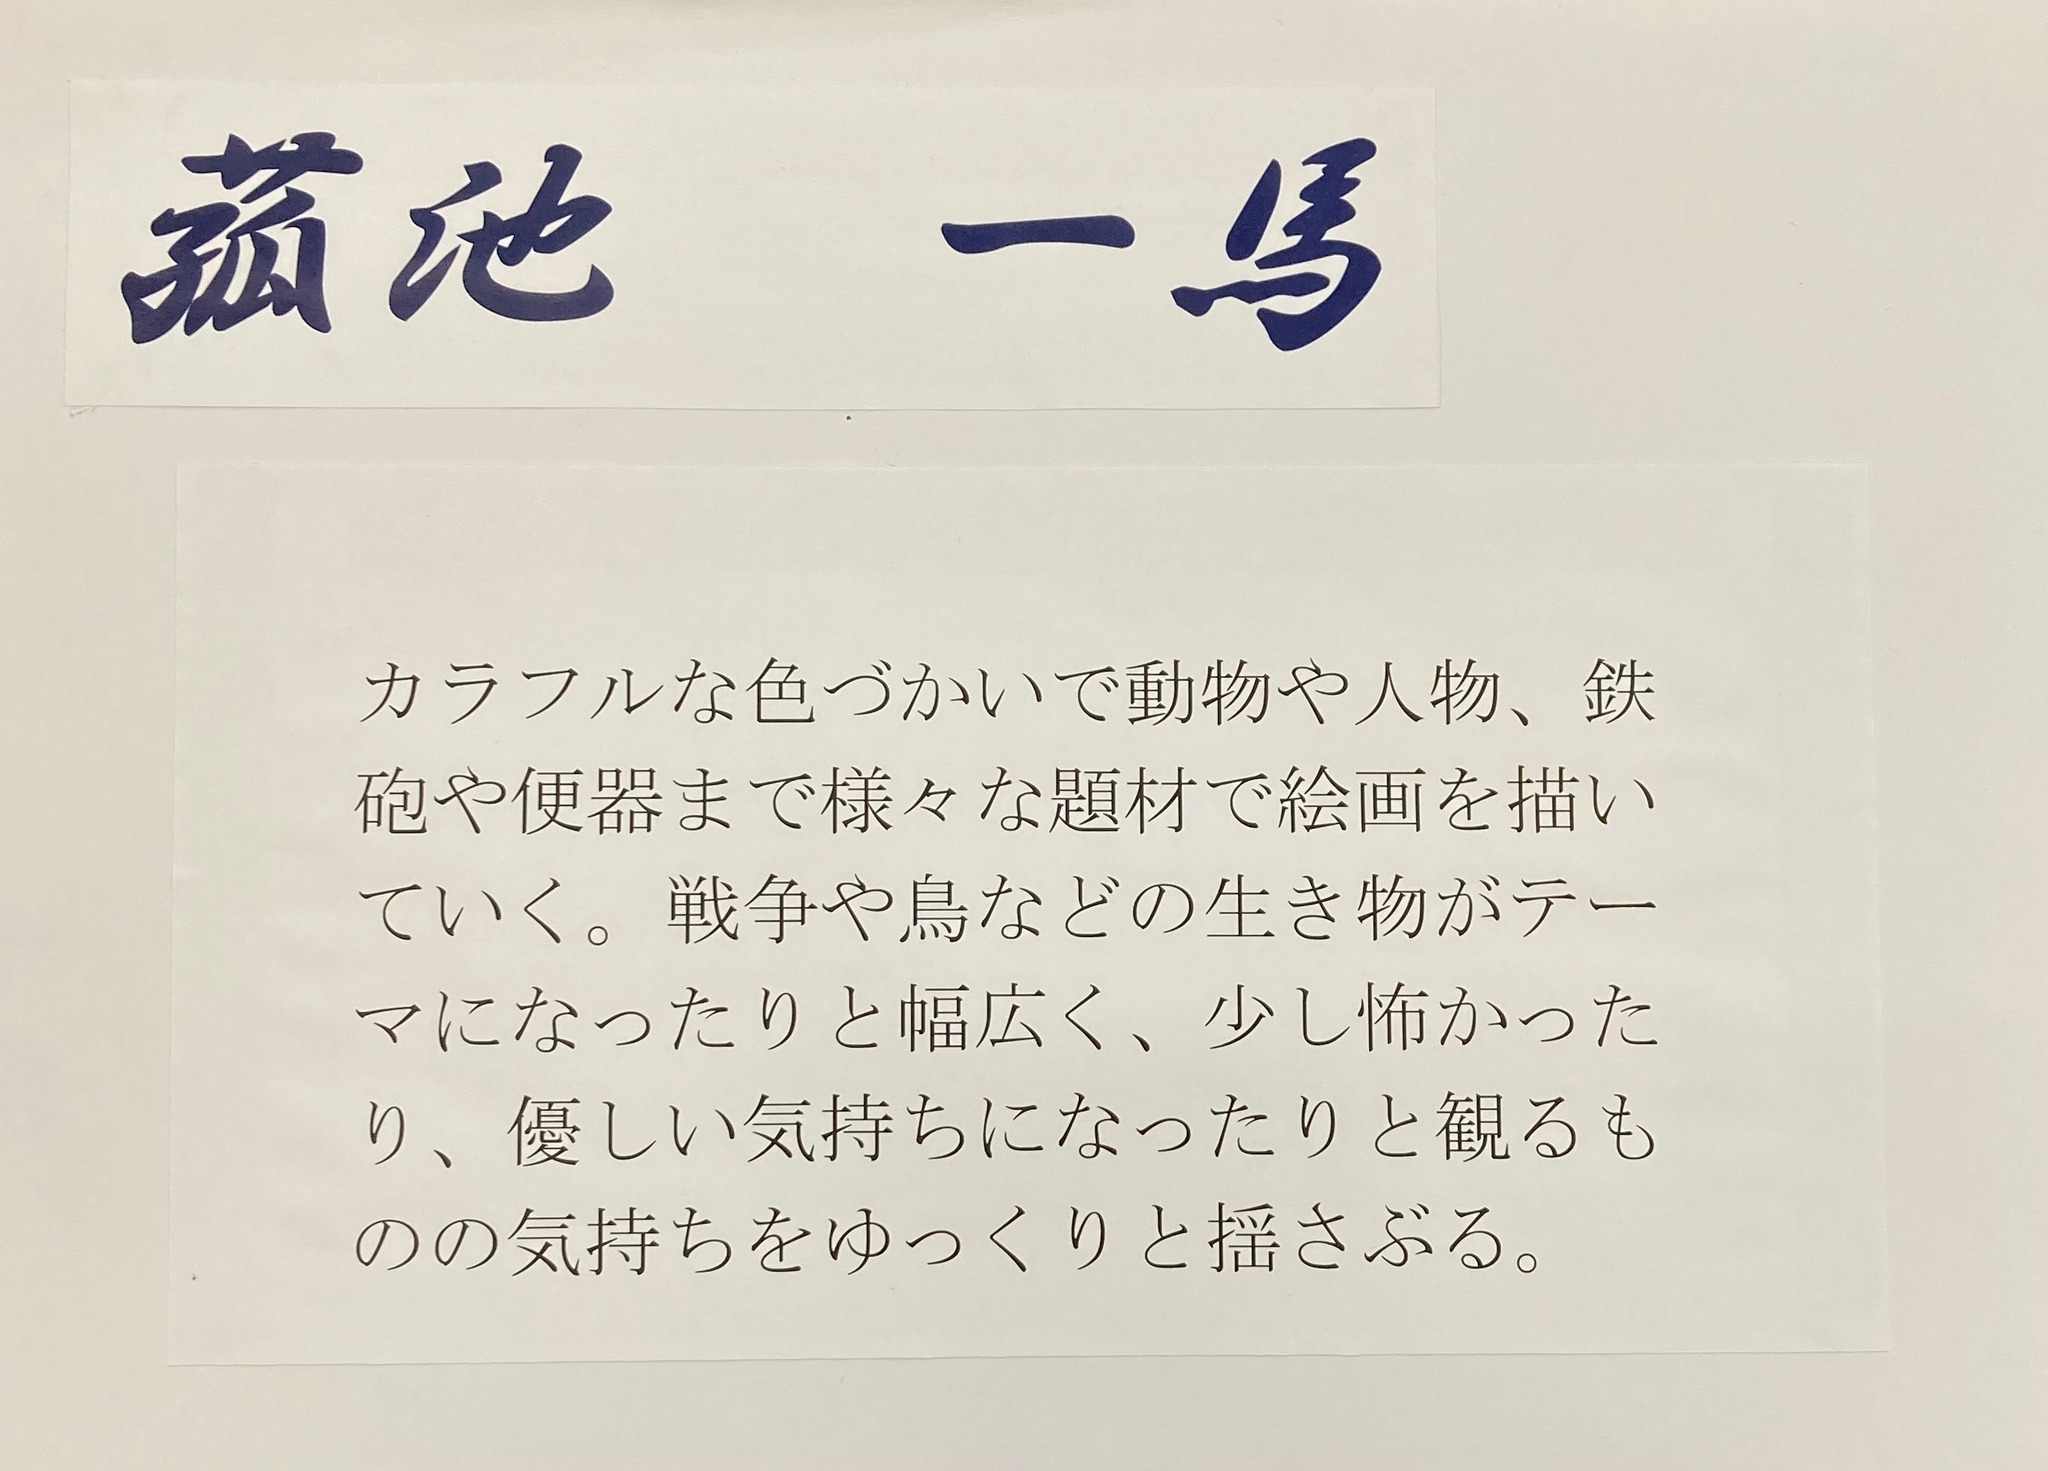 菰池 一馬
カラフルな色づかいで動物や人物、鉄
砲や便器まで様々な題材で絵画を描い
ていく。戦争や鳥などの生き物がテー
マになったりと幅広く、少し怖かった
り、優しい気持ちになったりと観るも
のの気持ちをゆっくりと揺さぶる。